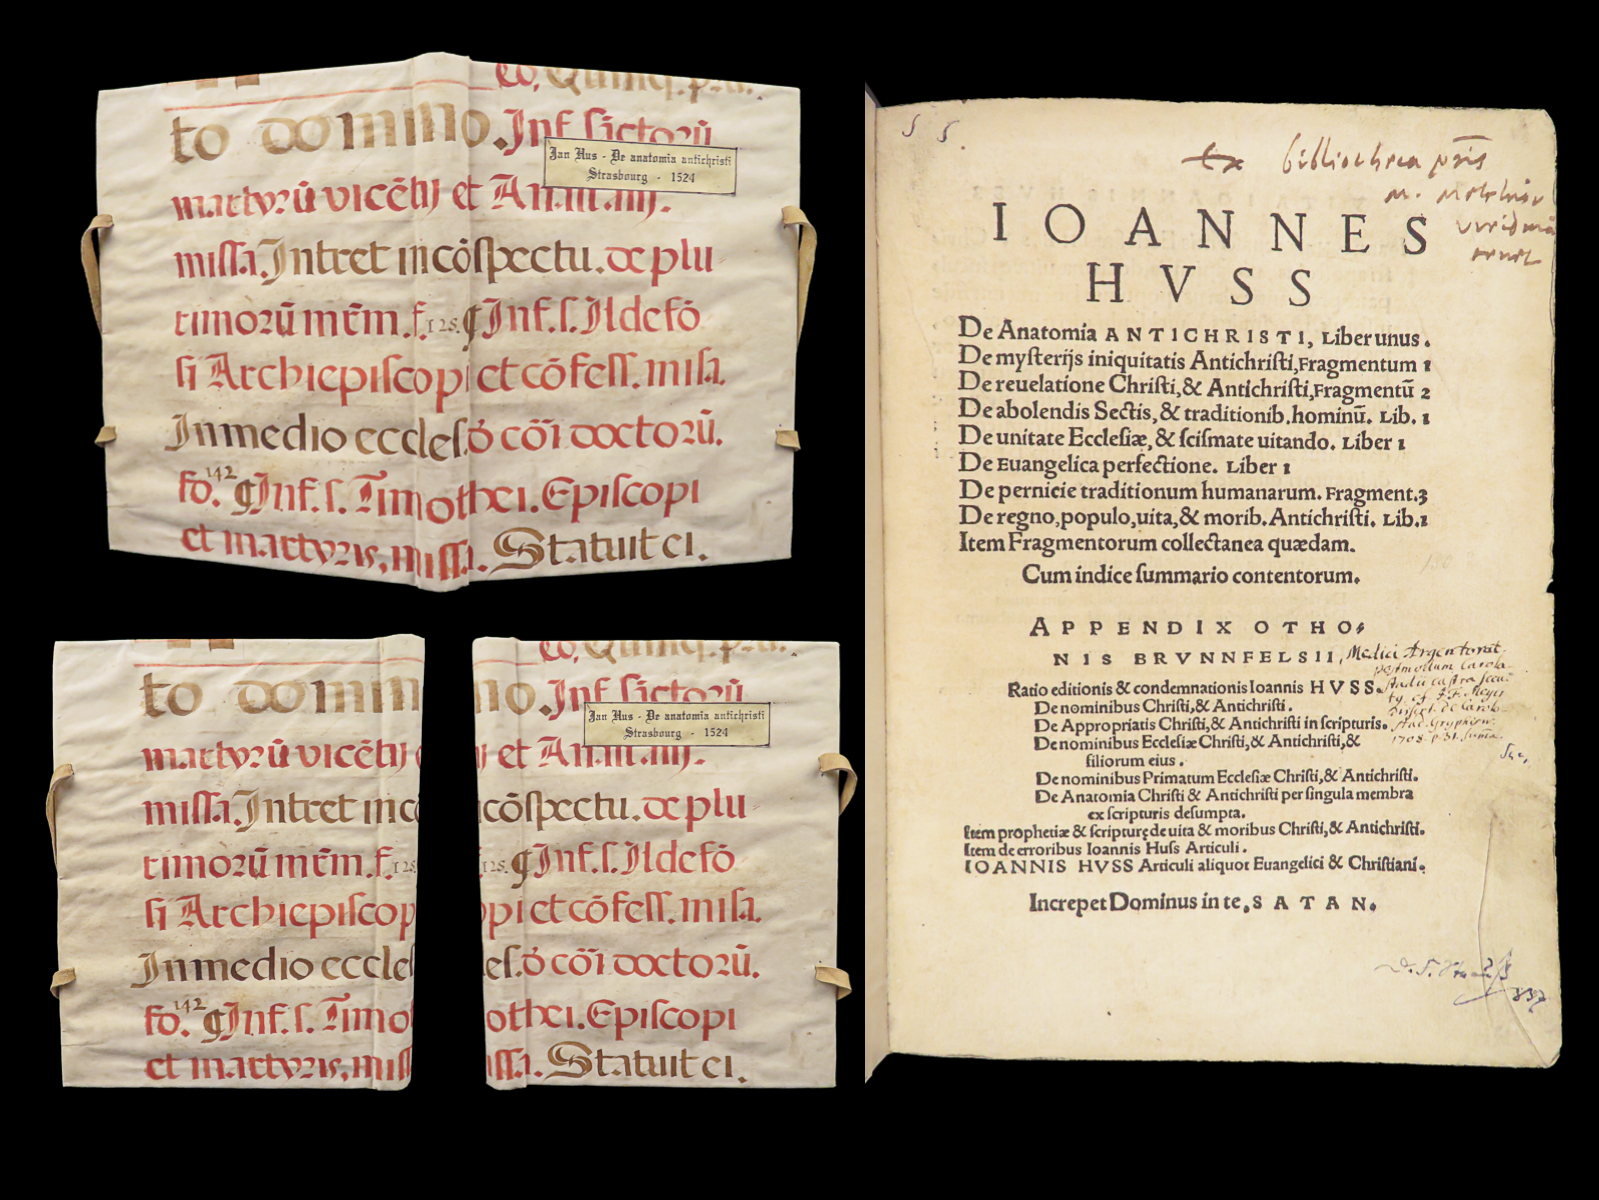 eo, Quinq.
to domino. Inf. sāctorū
Jan Hus - De anatomia antichristi
Strasbourg - 1524
martyrū vicētij et
missa. Intret in cōſpectu. de plu
rimorū mr̄m. f. 125. Inf. s. Ildefō
si Archiepiſcopi et cōfeſſ. miſa.
In medio eccleſ. ō cōi doctorū.
fo. 142 Inf. s. Timothei. Epiſcopi
et martyris, miſſa. Statuit ei.
to domin
martyrū vicētij
miſſa. Intret in cō
rimorū mr̄m. f. 125
si Archiepiſcop
In medio eccleſ
fo. 142 Inf. s. Timo
et martyris, miſſ
eo, Quinq.
no. Inf. sāctorū
Jan Hus - De anatomia antichristi
Strasbourg - 1524
et
cōſpectu. de plu
125. Inf. s. Ildefō
pi et cōfeſſ. miſa.
eſ. ō cōi doctorū.
othei. Epiſcopi
iſſa. Statuit ei.
Ex bibliotheca
IOANNES
HVSS
De Anatomia ANTICHRISTI, Liber unus.
De myſterijs iniquitatis Antichriſti, Fragmentum 1
De reuelatione Chriſti, & Antichriſti, Fragmentū 2
De abolendis Sectis, & traditionib. hominū. Lib. 1
De unitate Eccleſiæ, & ſciſmate uitando. Liber 1
De Euangelica perfectione. Liber 1
De pernicie traditionum humanarum. Fragment. 3
De regno, populo, uita, & morib. Antichriſti. Lib. 1
Item Fragmentorum collectanea quædam.
Cum indice ſummario contentorum.
APPENDIX OTHO⸗
NIS BRVNNFELSII, Medici Argentorat.
Ratio editionis & condemnationis Ioannis HVSS.
De nominibus Chriſti, & Antichriſti.
De Appropriatis Chriſti, & Antichriſti in ſcripturis.
De nominibus Eccleſiæ Chriſti, & Antichriſti, &
filiorum eius.
De nominibus Primatum Eccleſiæ Chriſti, & Antichriſti.
De Anatomia Chriſti & Antichriſti per ſingula membra
ex ſcripturis deſumpta.
Item prophetiæ & ſcripturę de uita & moribus Chriſti, & Antichriſti.
Item de erroribus Ioannis Huſs Articuli.
IOANNIS HVSS Articuli aliquot Euangelici & Chriſtiani.
Increpet Dominus in te, SATAN.